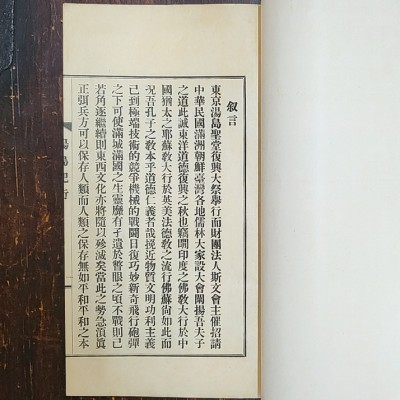 叙言
東京湯島聖堂復興大祭舉行而財團法人斯文會主催招請
中華民國滿洲朝鮮臺灣各地儒林大家設大會闡揚吾夫子
之道此誠東洋道德復興之秋也竊聞印度之佛教大行於中
國猶太之耶蘇教大行於英美法德教之流行佛蘇尚如此而
況吾孔子之教本乎道德仁義者哉挽近物質文明功利主義
已到極端技術的競爭機械的戰鬪日復巧妙新奇飛行砲彈
之下可使滿城滿國之生靈靡有孑遺於瞥眼之頃不戰則已
若角逐繼續則東西文化亦將隨以殄滅矣當此之勢急須眞
正弭兵方可以保存人類而人類之保存無如平和平和之本
湯島紀行
一